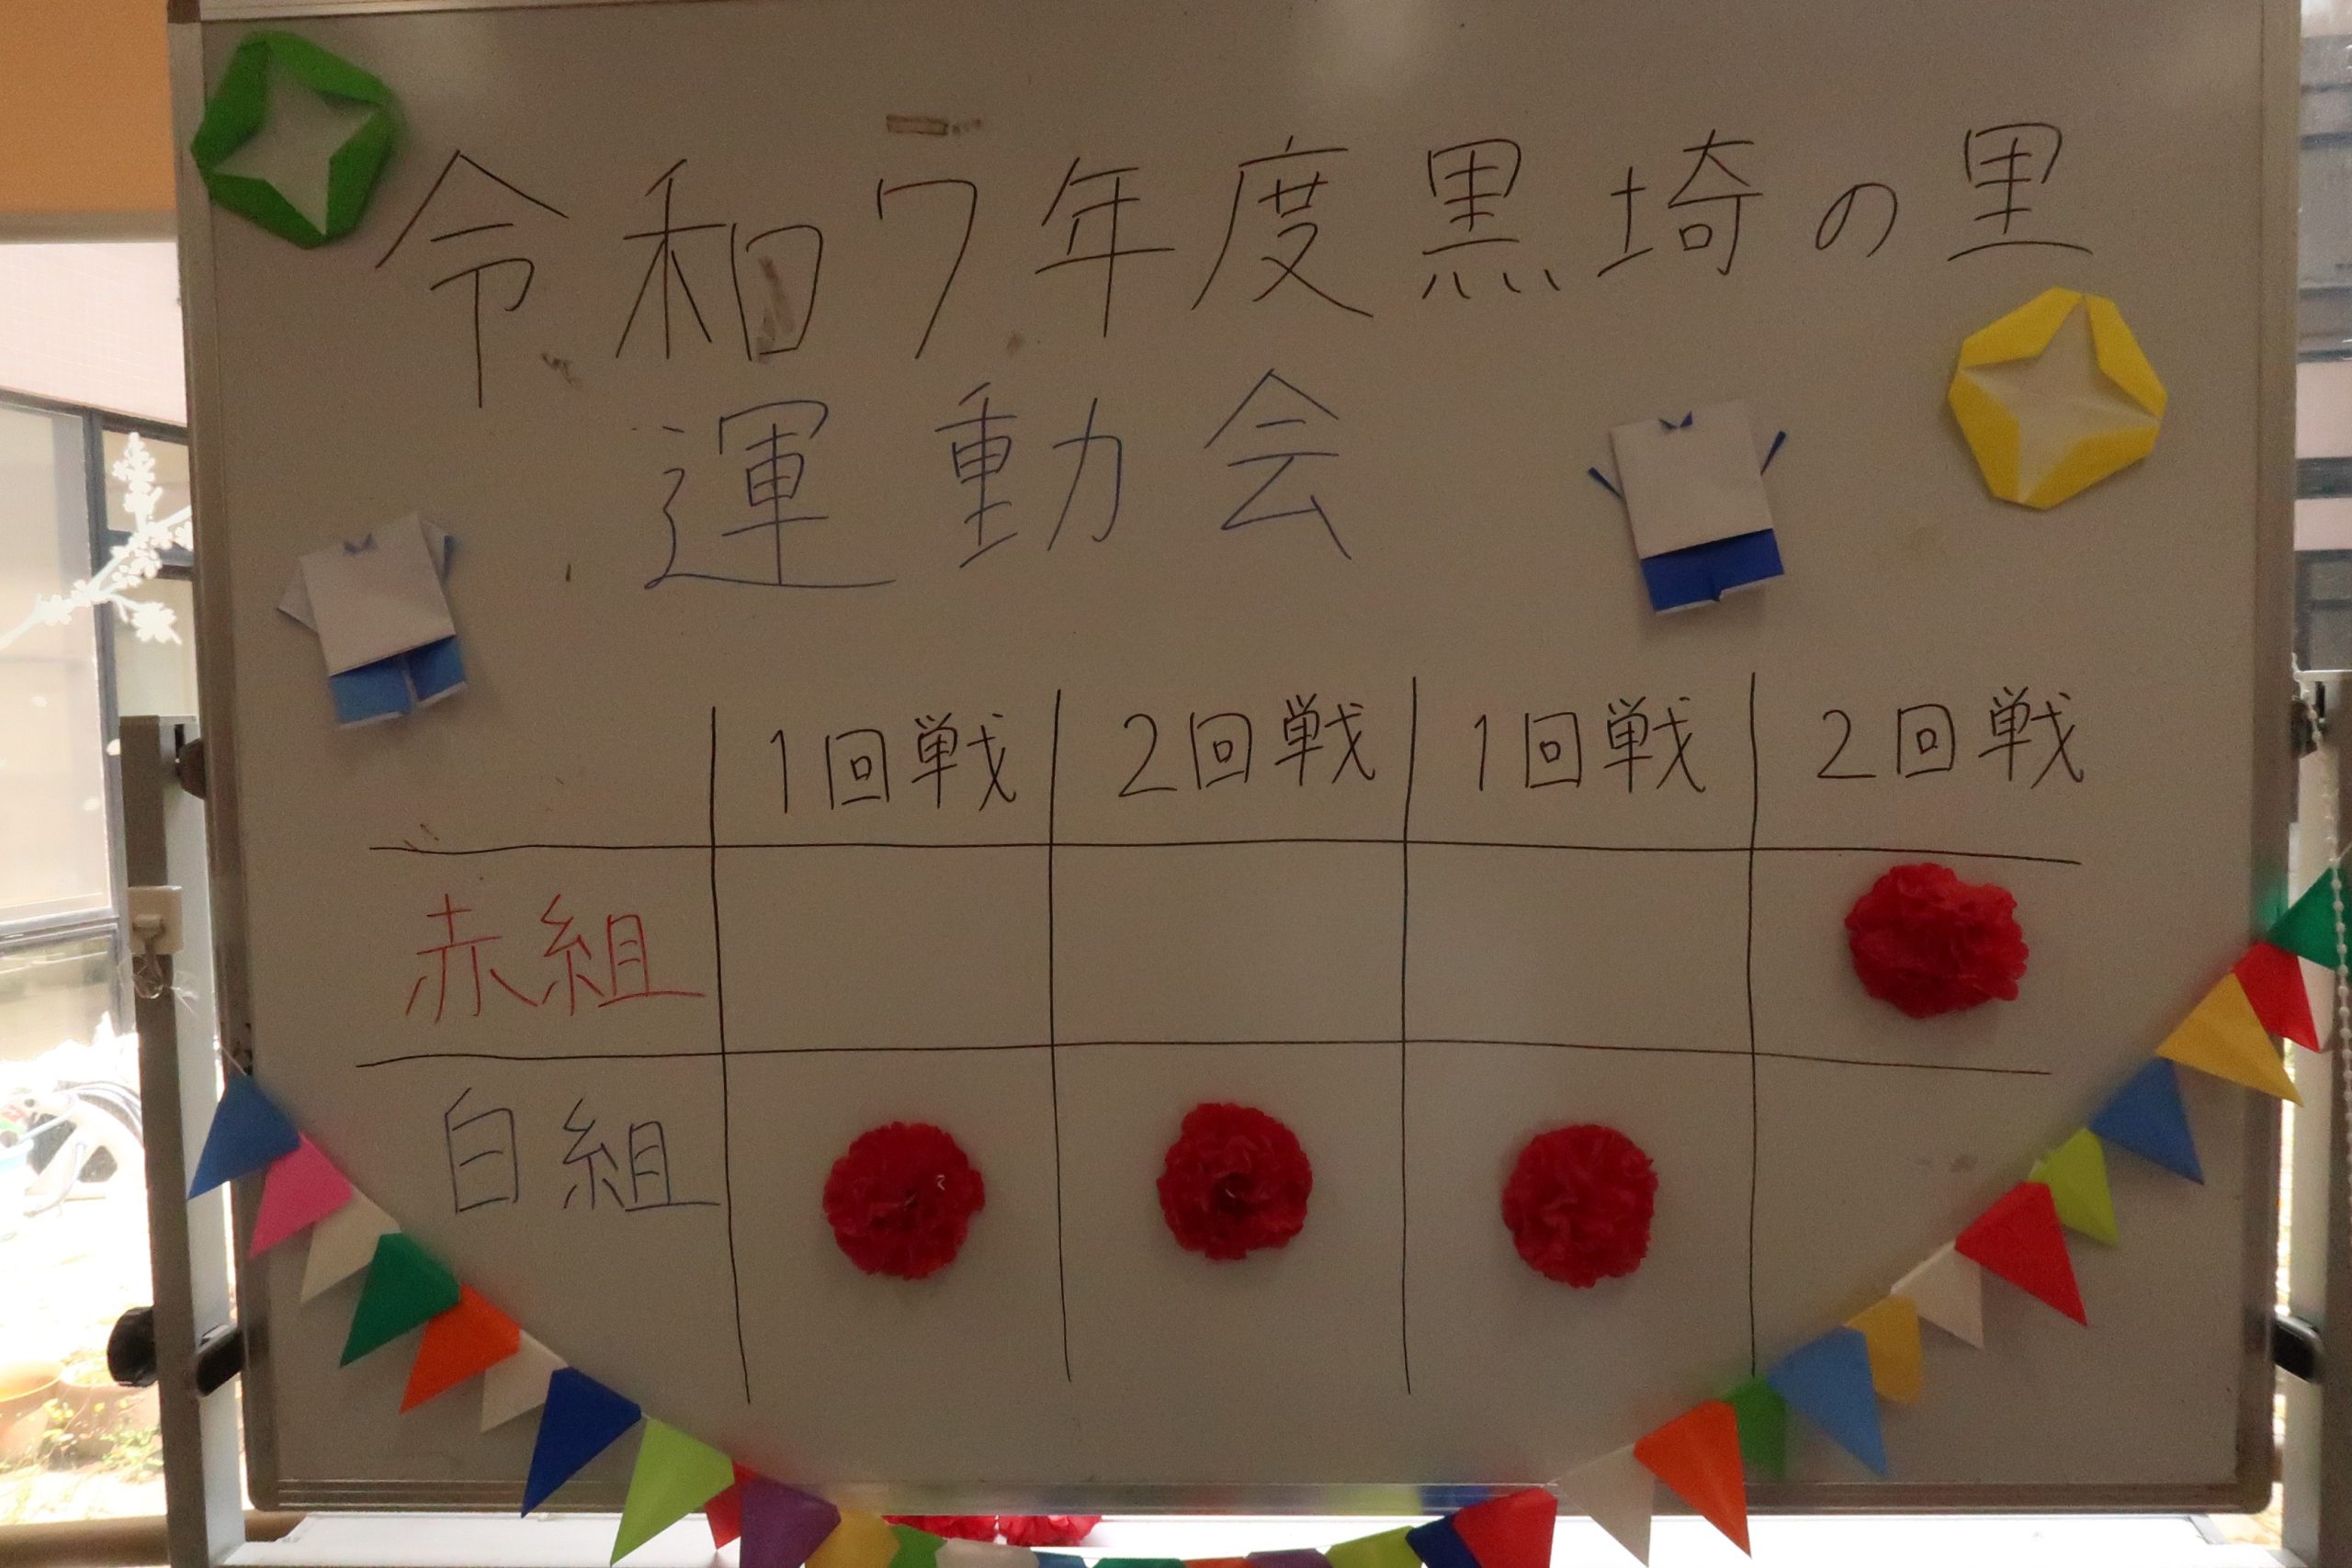 令和7年度黒埼の里
運動会
1回戦 2回戦 1回戦 2回戦
赤組
白組